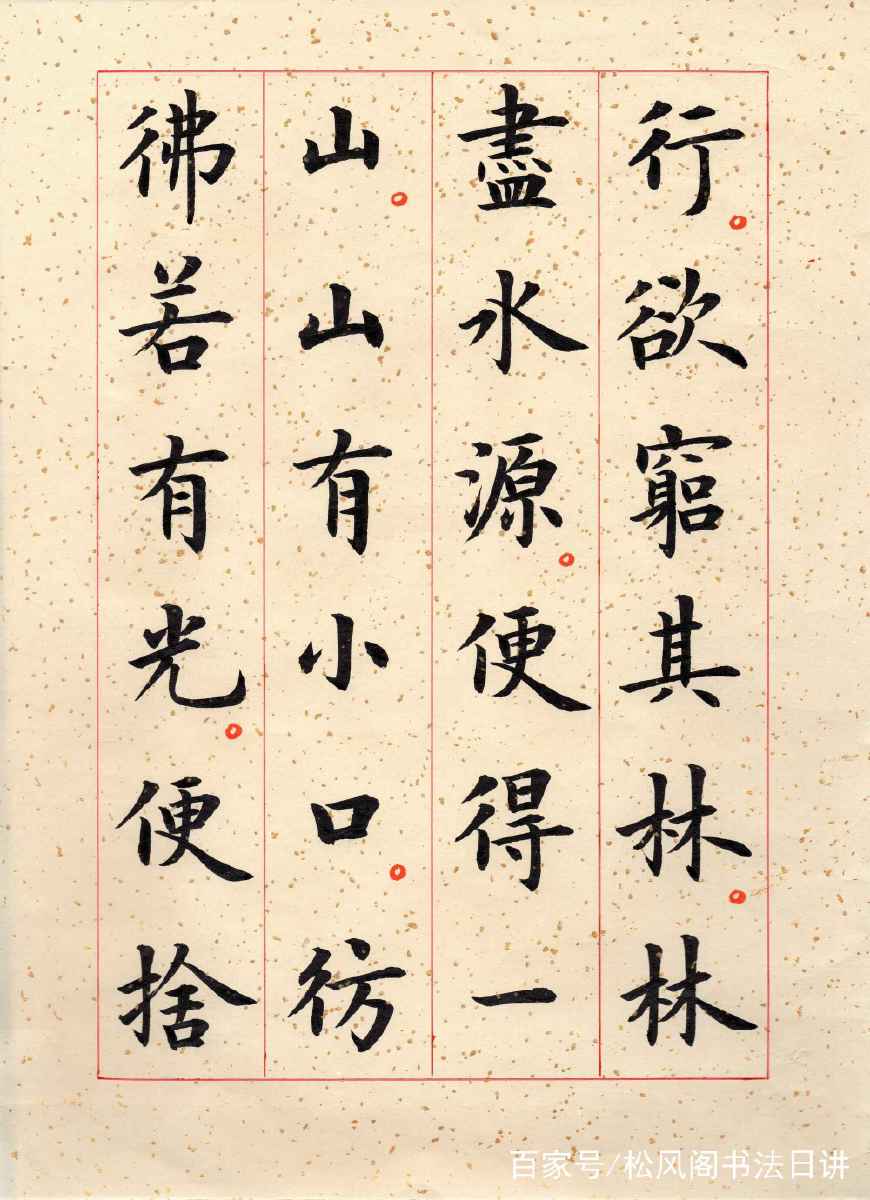 行欲窮其林林
盡水源便得一
山山有小口彷
彿若有光便捨
百家号/松风阁书法日讲